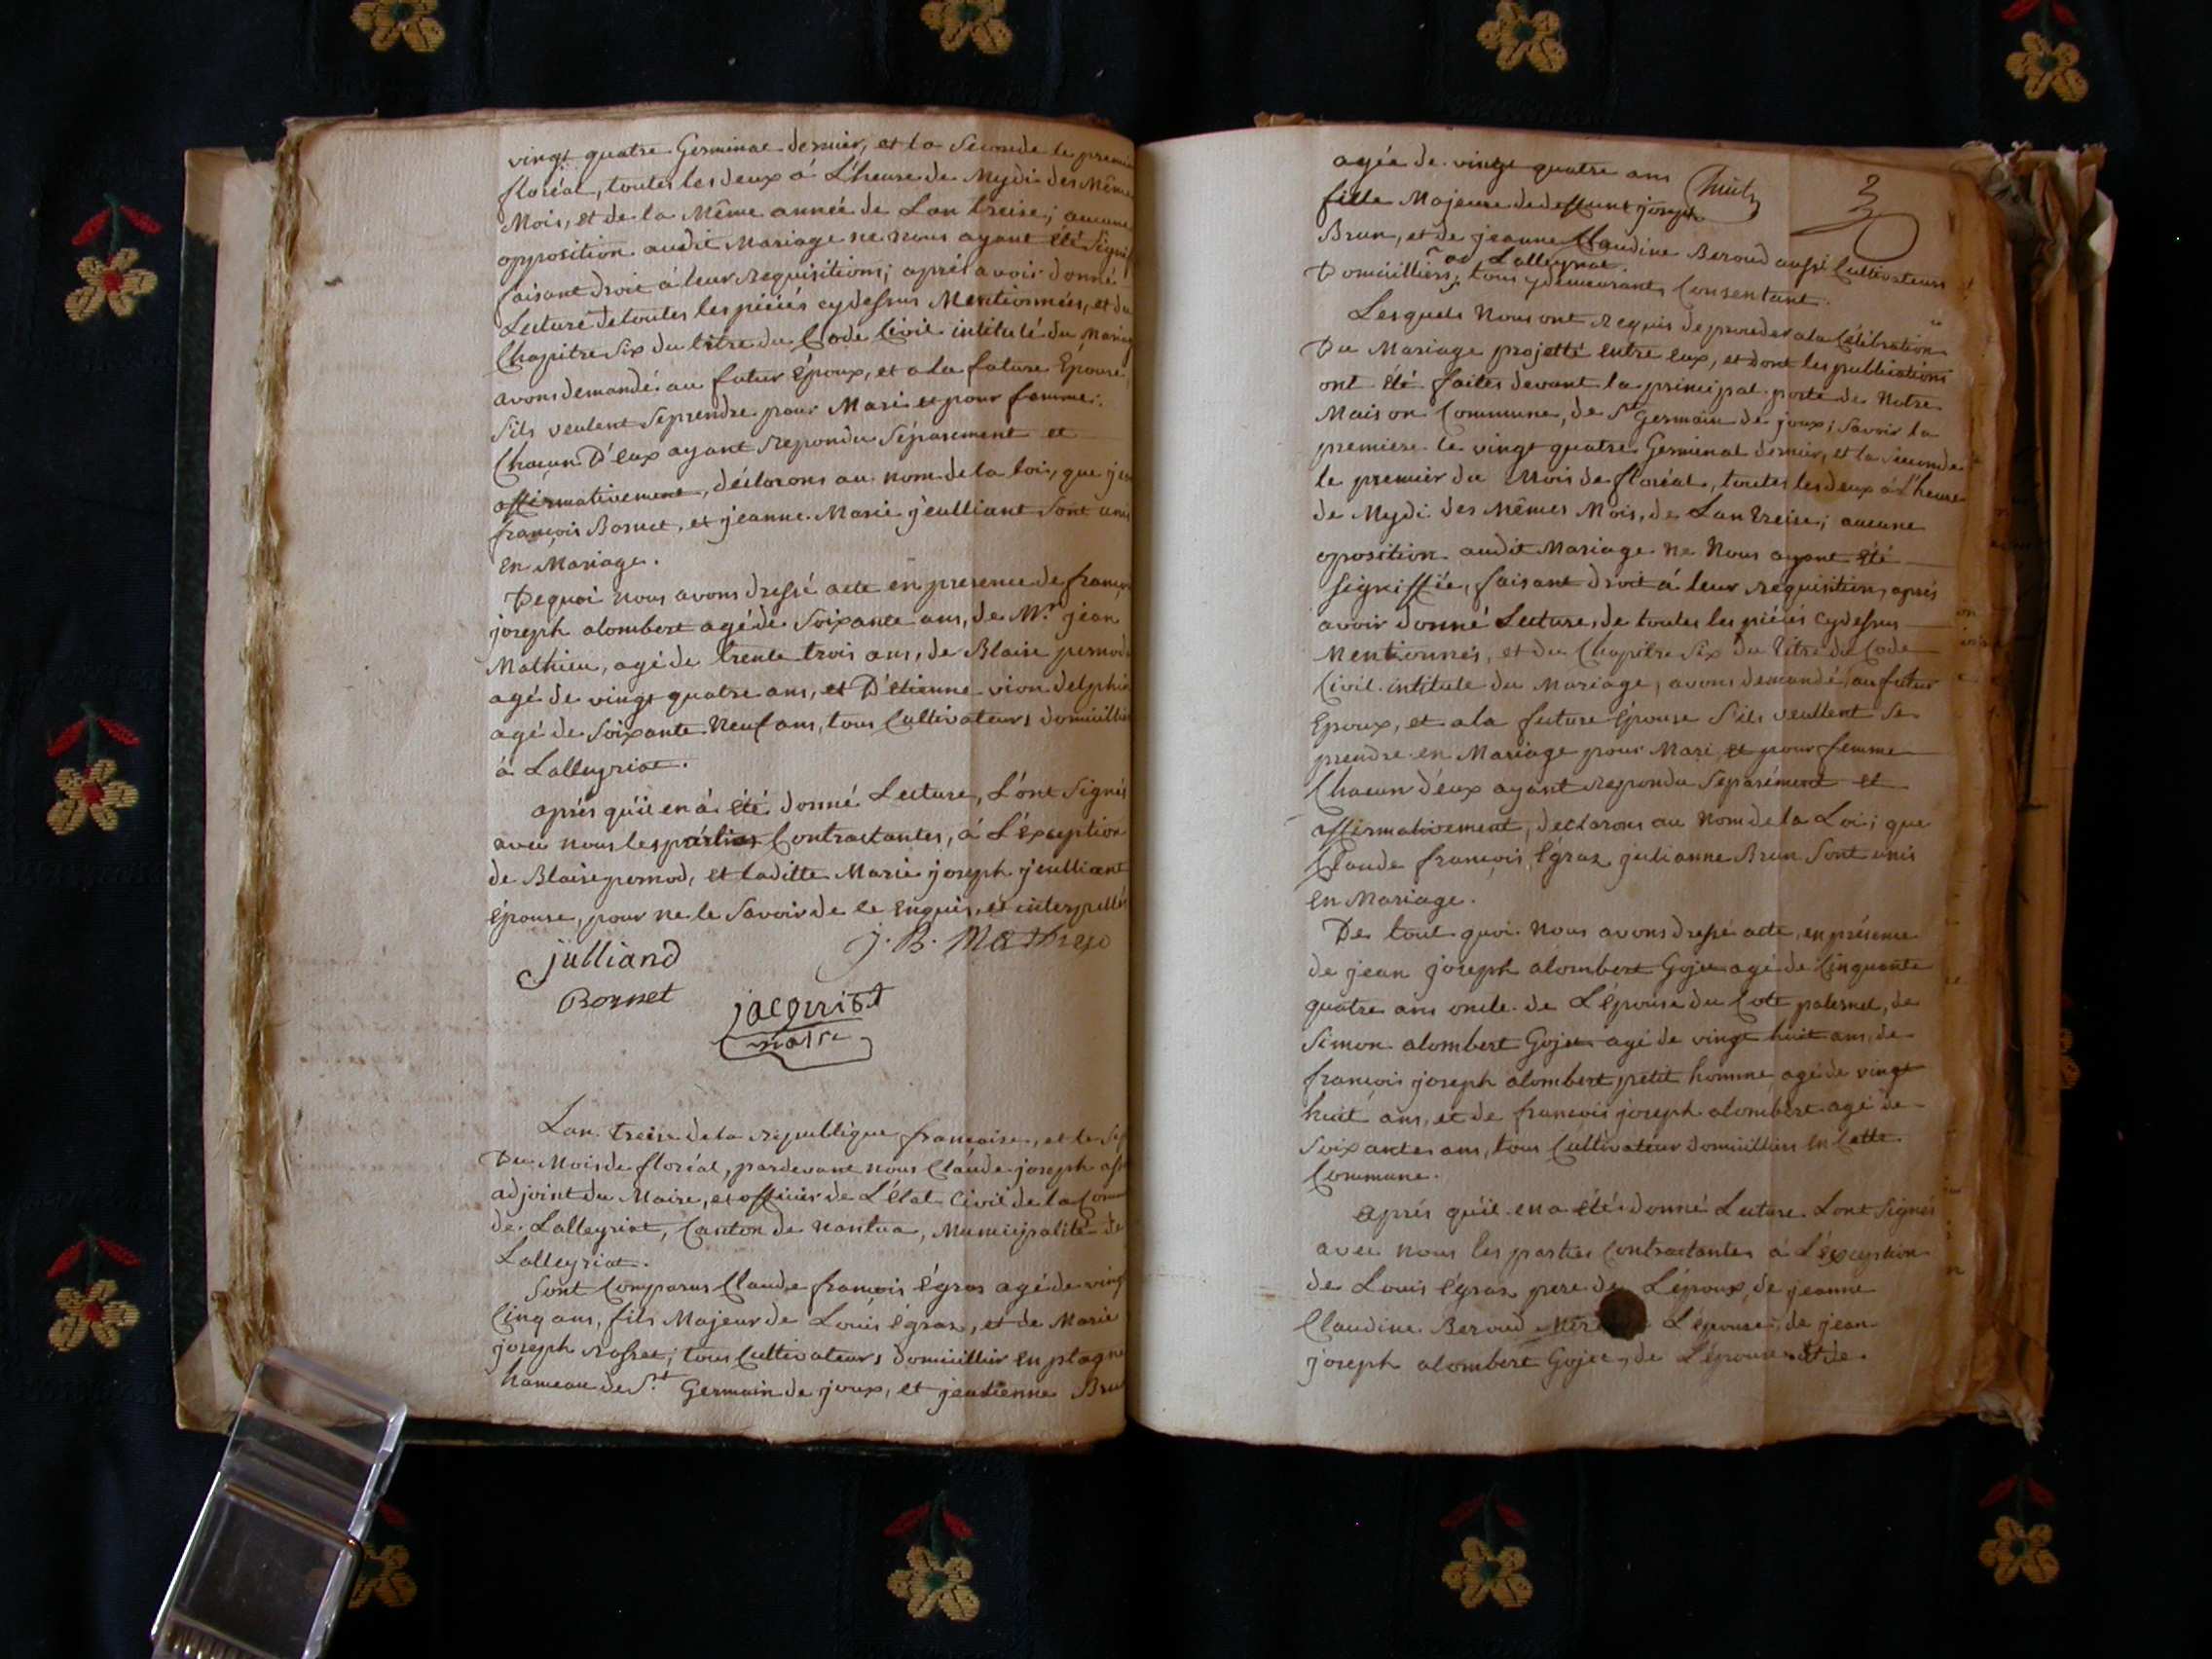 vingt quatre Germinal dernier, et la Seconde le premier
floréal, toutes les deux á L'heure de Mydi des Même
Mois, et de la Même année de Lan treise; aucune
opposition audit Mariage ne nous ayant été Signif
faisant droit á leur requisitions; aprés avoir donné
Lecture de toutes les piéces cydessus Mentionnées, et du
Chapitre Six du titre du Code Civil intitulé du Mariag
avons demandé au futur époux, et a la future Epouse
S'ils veulent Seprendre pour Mari et pour femme;
Chacun D'eux ayant repondu Séparement et
affirmativement, déclarons au nom de la loi, que jea
françois Bornet, et jeanne Marie jeulliant Sont unis
en Mariage.
Dequoi nous avons dressé acte en presence de françoi
joseph alombert agé de Soixante ans, de Mr. jean
Mathieu, agé de trente trois ans, de Blaise pernod
agé de vingt quatre ans, et D'etienne vion delphin
agé de Soixante Neuf ans, tous Cultivateurs domicilliés
á Lalleyriat.
aprés qu'il en á été donné Lecture, L'ont Signés
avec nous les parties Contractantes, á L'exception
de Blaise pernod, et laditte Marie joseph jeulliant
épouse, pour ne le Savoir de ce Enquis, et interpellés
julliand
J. B. Mathieu
Bornet
jacquiot
maire
Lan treise de la republique francaise, et le Sep
Du Mois de floréal, pardevant nous Claude joseph
adjoint du Maire, et officier de L'état Civil de la Com
de Lalleyriat, Canton de Nantua, Municipalité de
Lalleyriat.
Sont Comparus Claude françois égraz agé de vingt
Cinq ans, fils Majeur de Louis égraz, et de Marie
joseph rosset; tous Cultivateurs domicillier en plagne
hameau de St. Germain de joux, et Brun
agée de vingt quatre ans
huit
2
fille Majeure de deffunt joseph
Brun, et de jeanne Claudine Beroud aussi Cultivateurs
ad Lalleyriat.
Domicilliers, tous ydemeurants Consentant.
Lesquels Nous ont requis de proceder a la Célébration
Du Mariage projetté entre eux, et dont les publications
ont été faites devant la principal porte de Notre
Maison Commune, de St Germain de joux; Savoir la
premiere le vingt quatre Germinal dernier, et la Seconde
le premier du Mois de floréal, toutes les deux á L'heure
de Mydi des Mêmes Mois, de Lan treise; aucune
oposition audit Mariage ne Nous ayant été
Signiffiée, faisant droit á leur requisition, aprés
avoir donné Lecture, de toutes les piéces cydessus
Mentionnés, et du Chapitre Six du titre du Code
Civil intitule du Mariage, avons demandé au futur
Epoux, et a la future Epouse S'ils veullent Se
prendre en Mariage pour Mari et pour femme
Chacun d'eux ayant repondu Separément et
affirmativement, declarons au Nom de la Loi; que
Claude françois égraz julianne Brun Sont unis
en Mariage.
De tout quoi Nous avons dressé acte, en présence
de jean joseph alombert Gojee agé de Cinquante
quatre ans oncle de L'épouse du Coté paternel, de
Simon alombert Gojee agé de vingt huit ans, de
françois joseph alombert petit homme agé de vingt
huit ans, et de françois joseph alombert agé de
Soixantes ans, tous Cultivateur domicilliers en Cette
Commune.
aprés qu'il en a été donné Lecture Lont Signés
avec nous les parties Contractantes á L'exception
de Louis égraz pere de L'époux, de jeanne
Claudine Beroud Mere L'épouse, de jean
joseph alombert Gojee, de L'épouse et de